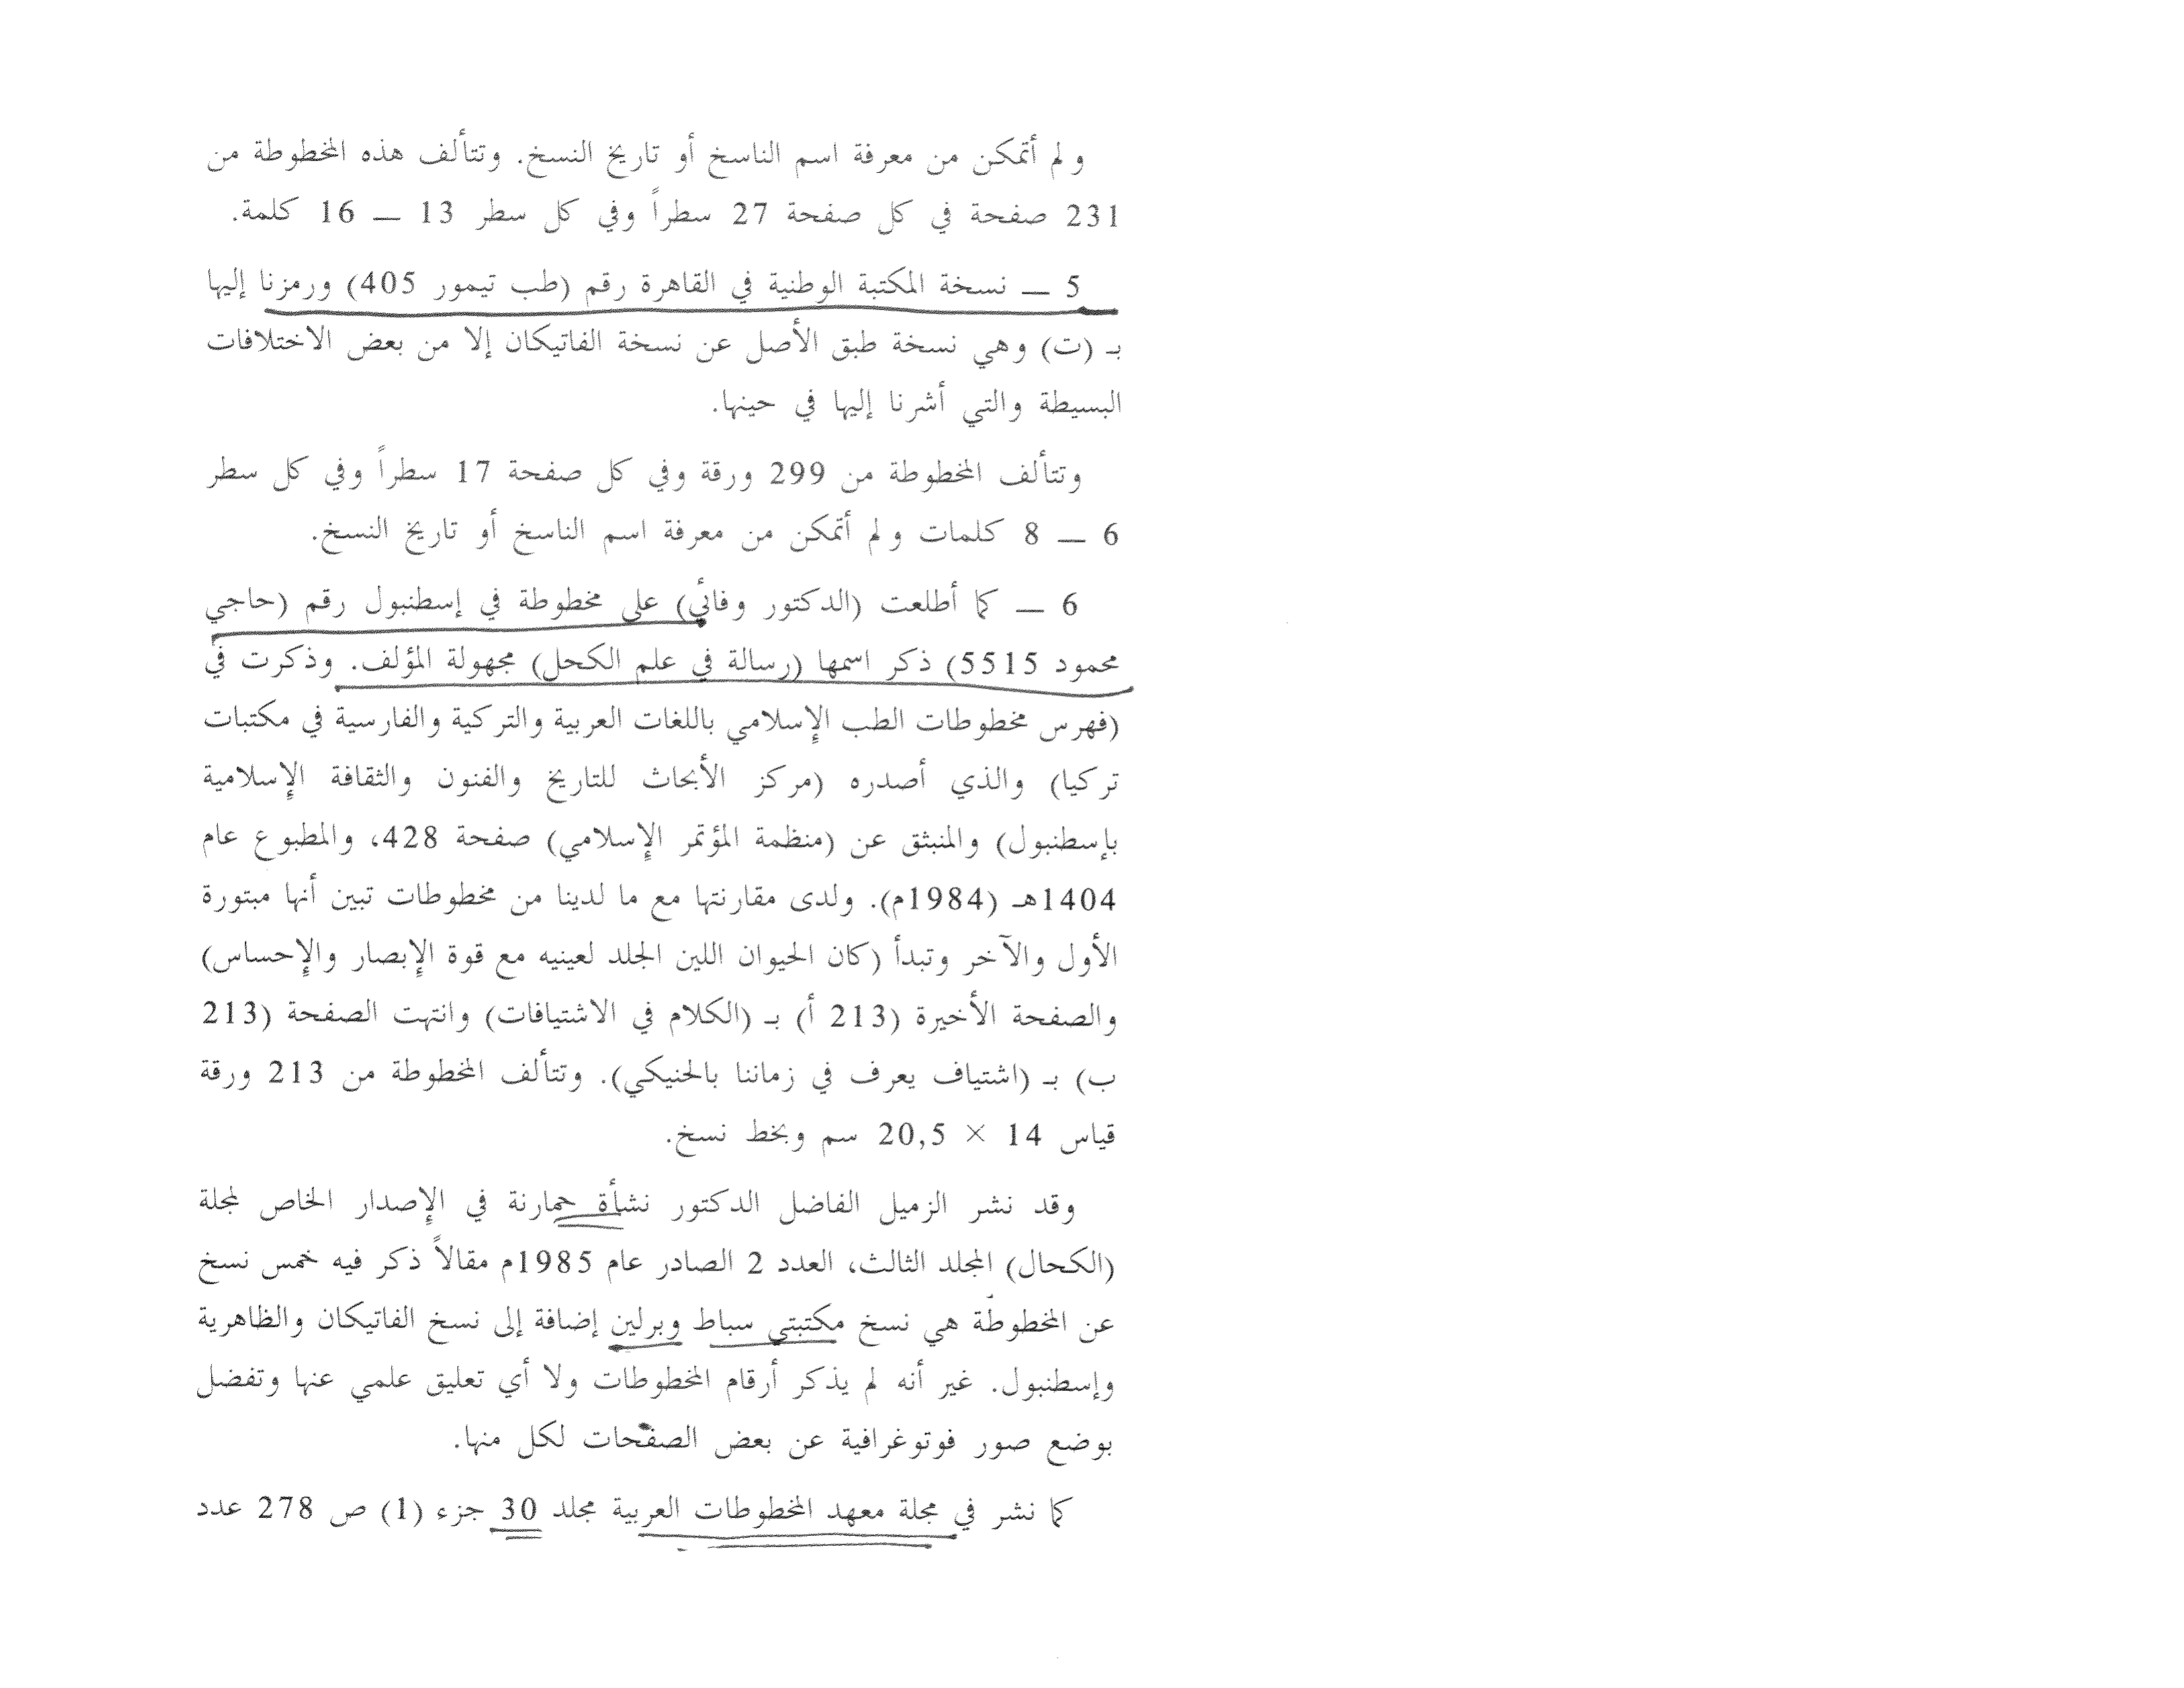 ولم أتمكن من معرفة اسم الناسخ أو تاريخ النسخ. وتتألف هذه المخطوطة من
231 صفحة في كل صفحة 27 سطراً وفي كل سطر 13 — 16 كلمة.
5 — نسخة المكتبة الوطنية في القاهرة رقم (طب تيمور 405) ورمزنا إليها
بـ (ت) وهي نسخة طبق الأصل عن نسخة الفاتيكان إلا من بعض الاختلافات
البسيطة والتي أشرنا إليها في حينها.
وتتألف المخطوطة من 299 ورقة وفي كل صفحة 17 سطراً وفي كل سطر
6 — 8 كلمات ولم أتمكن من معرفة اسم الناسخ أو تاريخ النسخ.
6 — كما أطلعت (الدكتور وفائي) على مخطوطة في إسطنبول رقم (حاجي
محمود 5515) ذكر اسمها (رسالة في علم الكحل) مجهولة المؤلف. وذكرت في
(فهرس مخطوطات الطب الإسلامي باللغات العربية والتركية والفارسية في مكتبات
تركيا) والذي أصدره (مركز الأبحاث للتاريخ والفنون والثقافة الإسلامية
بإسطنبول) والمنبثق عن (منظمة المؤتمر الإسلامي) صفحة 428، والمطبوع عام
1404هـ (1984م). ولدى مقارنتها مع ما لدينا من مخطوطات تبين أنها مبتورة
الأول والآخر وتبدأ (كان الحيوان اللين الجلد لعينيه مع قوة الإبصار والإحساس)
والصفحة الأخيرة (213 أ) بـ (الكلام في الاشتيافات) وانتهت الصفحة (213
ب) بـ (اشتياف يعرف في زماننا بالحنيكي). وتتألف المخطوطة من 213 ورقة
قياس 14 × 20,5 سم وبخط نسخ.
وقد نشر الزميل الفاضل الدكتور نشأة حمارنة في الإصدار الخاص لمجلة
(الكحال) المجلد الثالث، العدد 2 الصادر عام 1985م مقالاً ذكر فيه خمس نسخ
عن المخطوطة هي نسخ مكتبتي سباط وبرلين إضافة إلى نسخ الفاتيكان والظاهرية
وإسطنبول. غير أنه لم يذكر أرقام المخطوطات ولا أي تعليق علمي عنها وتفضل
بوضع صور فوتوغرافية عن بعض الصفحات لكل منها.
كما نشر في مجلة معهد المخطوطات العربية مجلد 30 جزء (1) ص 278 عدد